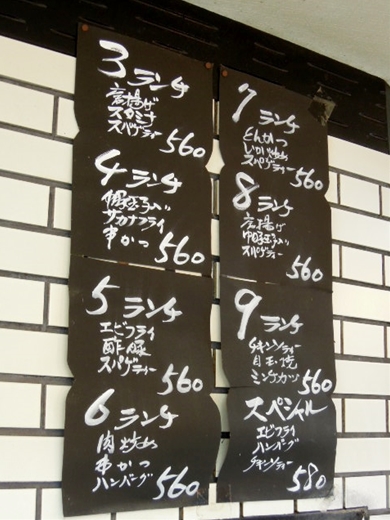 3 ランチ
唐揚げ
スタミナ
スパゲティー
560
4 ランチ
サカナフライ
串かつ
560
5 ランチ
エビフライ
酢豚
スパゲティー
560
6 ランチ
肉
串かつ
ハンバーグ
560
7 ランチ
とんかつ
スパゲティー
560
8 ランチ
唐揚げ
スパゲティー
560
9 ランチ
チキンソティー
目玉焼
ミンチカツ
560
スペシャル
エビフライ
ハンバーグ
チキンソティー
580